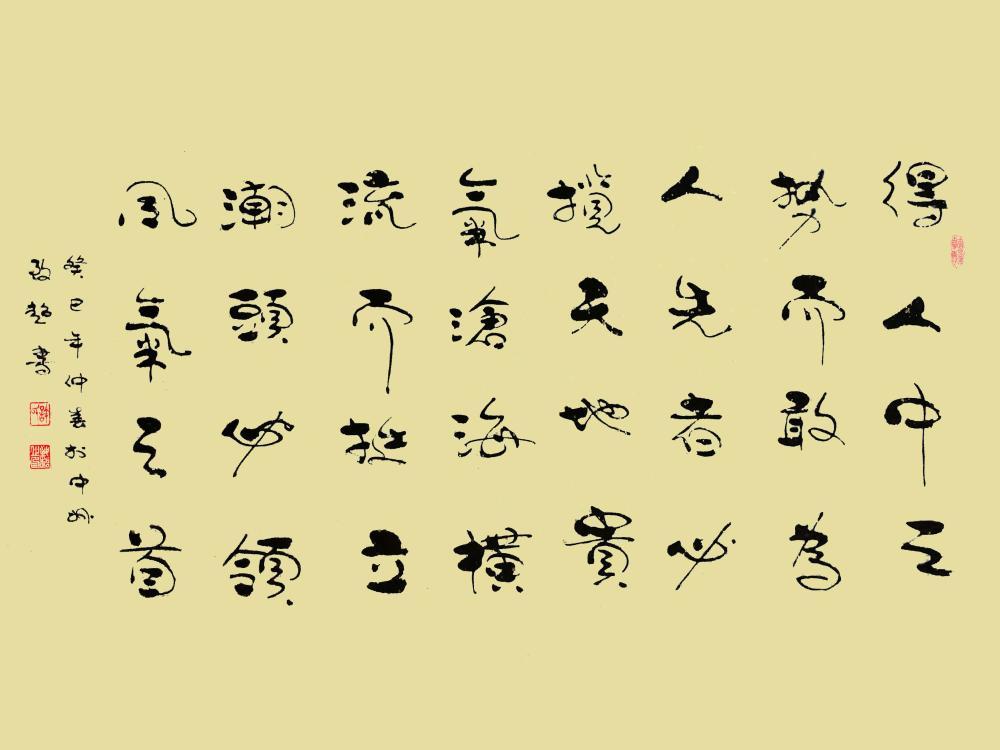 得人中之
势而敢為
人先者必
攬天地貴
氣滄海橫
流而挺立
潮頭必領
風氣之首
癸巳年仲春於中州
書